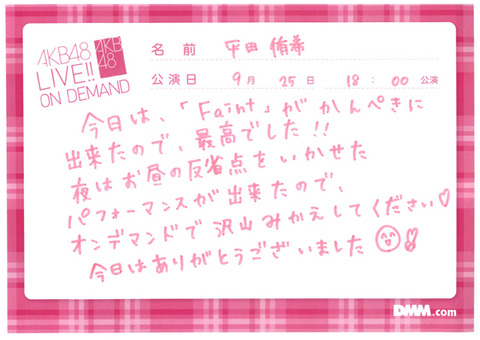 AKB48
LIVE!!
ON DEMAND
AKB
48
名前 平田侑希
公演日 9月25日 18:00公演
今日は、「Faint」がかんぺきに
出来たので、最高でした!!
夜はお昼の反省点をいかせた
パフォーマンスが出来たので、
オンデマンドで沢山みかえしてください♡
今日はありがとうございました
DMM.com